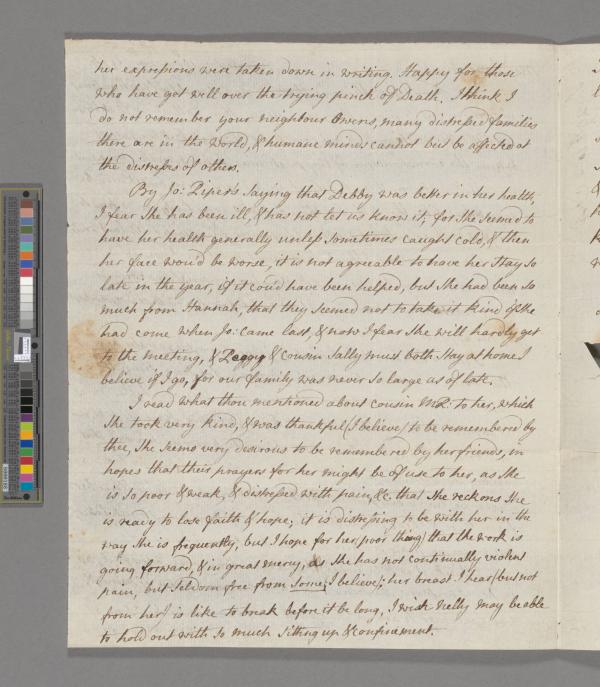 her expressions were taken down in writing. Happy for those
who have got well over the trying pinch of Death. I think I
do not remember your neighbour Owens, many distressed families
there are in the world, & humane minds cannot but be affected at
the distresses of others.
By Jo: Piper's saying that Debby was better in her health,
I fear she has been ill, & has not let us know it; for she seemed to
have her health generally unless sometimes caught cold, & then
her face wou'd be worse, it is not agreeable to have her stay so
late in the year, if it cou'd have been helped, but she had been so
much from Hannah, that they seemed not to take it kind if she
had come when Jo: came last, & now I fear she will hardly get
to the meeting, & Peggy & cousin Sally must both stay at home I
believe if I go, for our family was never so large as of late.
I read what thou mentioned about cousin MR: to her, which
she took very kind, & was thankful (I believe) to be remembered by
thee, she seems very desirous to be remembered by her friends, in
hopes that their prayers for her might be of use to her, as she
is so poor & weak, & distressed with pain, &c. that she reckons she
is ready to lose faith & hope; it is distressing to be with her in the
way she is frequently, but I hope for her (poor thing) that the work is
going forward, & in great mercy, as she has not continually violent
pain, but seldom free from some, I believe; her breast I hear (but not
from her) is like to break before it be long, I wish Nelly may be able
to hold out with so much sitting up & confinement.